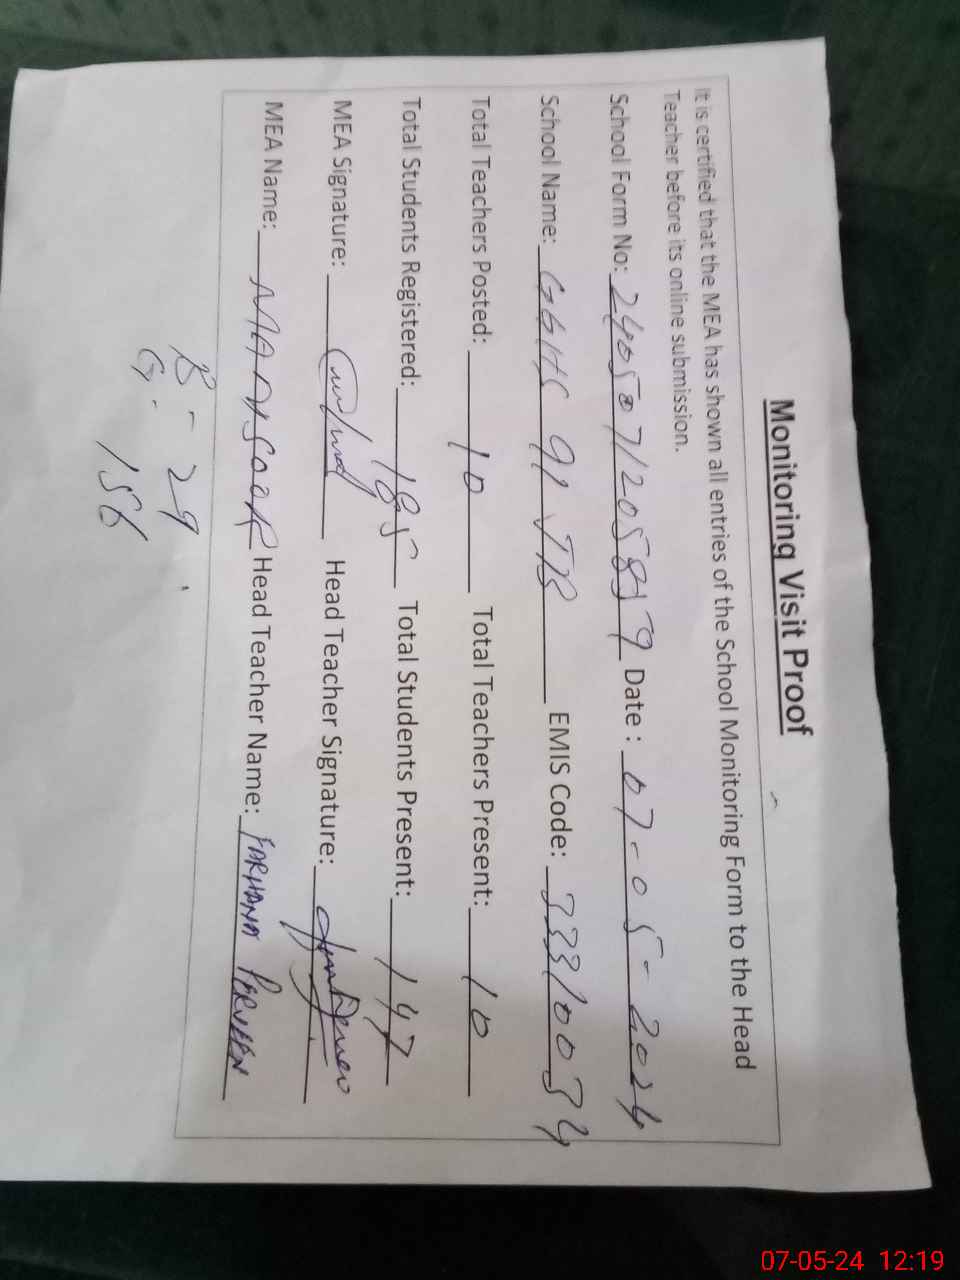 Monitoring Visit Proof
It is certified that the MEA has shown all entries of the School Monitoring Form to the Head
Teacher before its online submission.
School Form No: Date : 07-05-2024
School Name: GGHS 91 JB EMIS Code: 33310034
Total Teachers Posted: 10 Total Teachers Present: 10
Total Students Registered: 185 Total Students Present: 147
MEA Signature: Head Teacher Signature:
MEA Name: Head Teacher Name: FARHANA PARVEEN
B - 29
G - 156
07-05-24 12:19